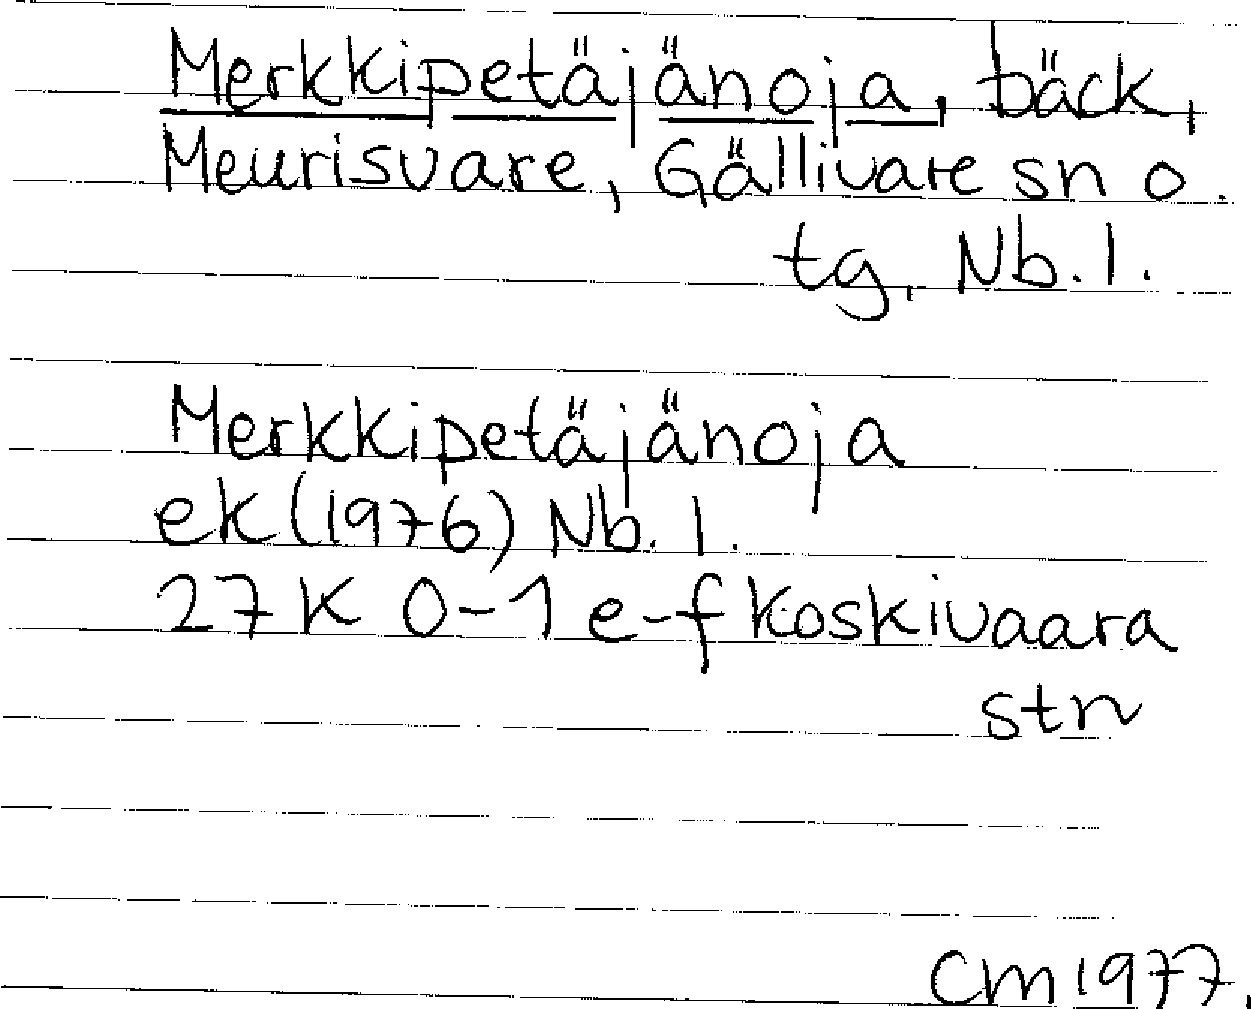 Merkkipetäjänoja, bäck,
Meurisvare, Gällivare sn o.
tg, Nb. l.
Merkkipetäjänoja
ek (1976) Nb. l.
27 K 0-1 e-f Koskivaara
stn
CM 1977.